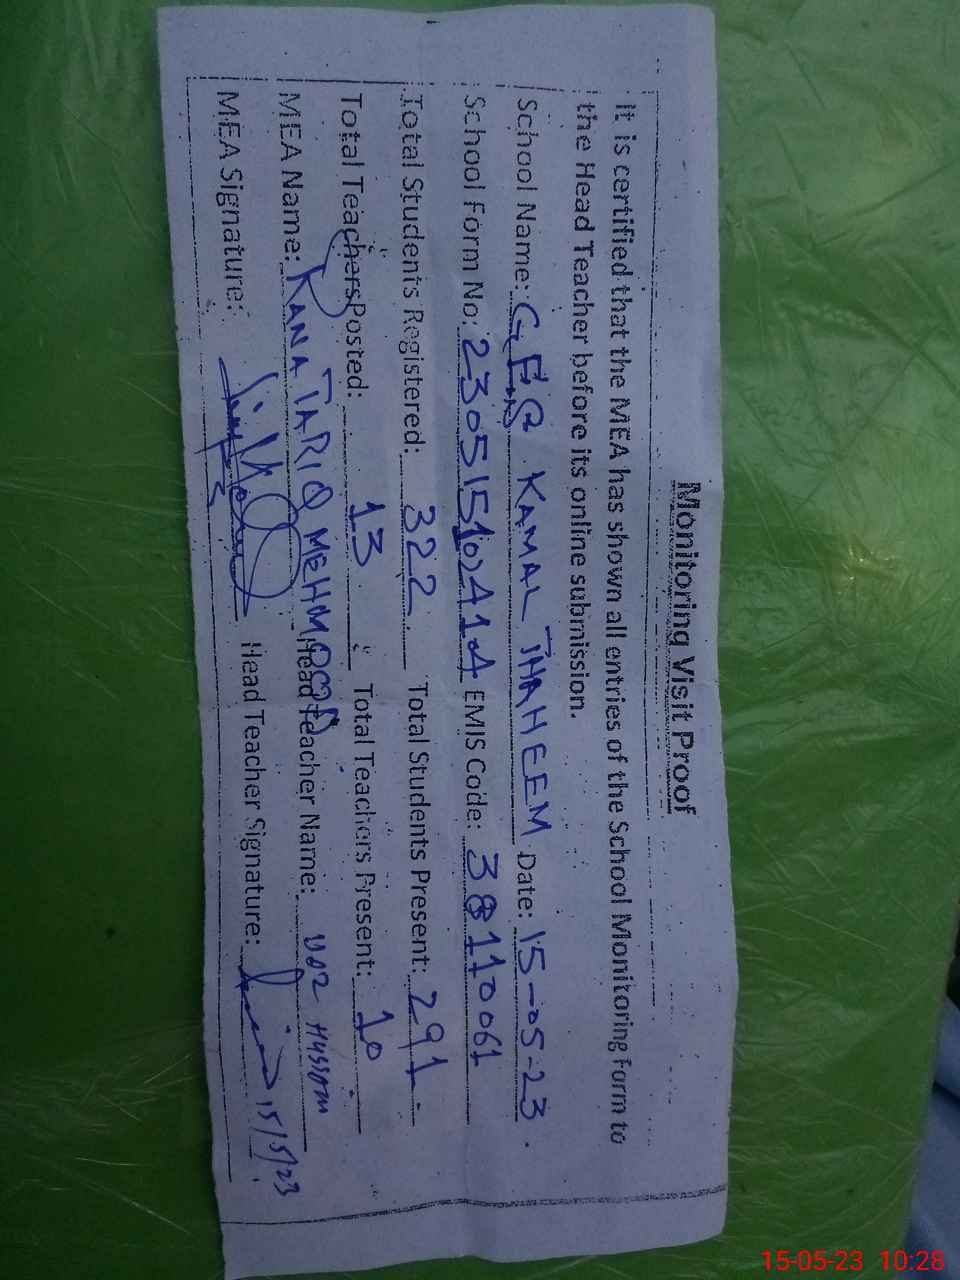 Monitoring Visit Proof
It is certified that the MEA has shown all entries of the School Monitoring Form to
the Head Teacher before its online submission.
School Name: GES KAMAL THAHEEM Date: 15-05-23.
School Form No: 2305151024104 EMIS Code: 38110061
Total Students Registered: 322 Total Students Present: 291
Total Teachers Posted: 13 Total Teachers Present: 10
MEA Name: RANA TARIQ MEHMOOD Head Teacher Name:
MEA Signature: Head Teacher Signature: 15/5/23
15-05-23 10:28